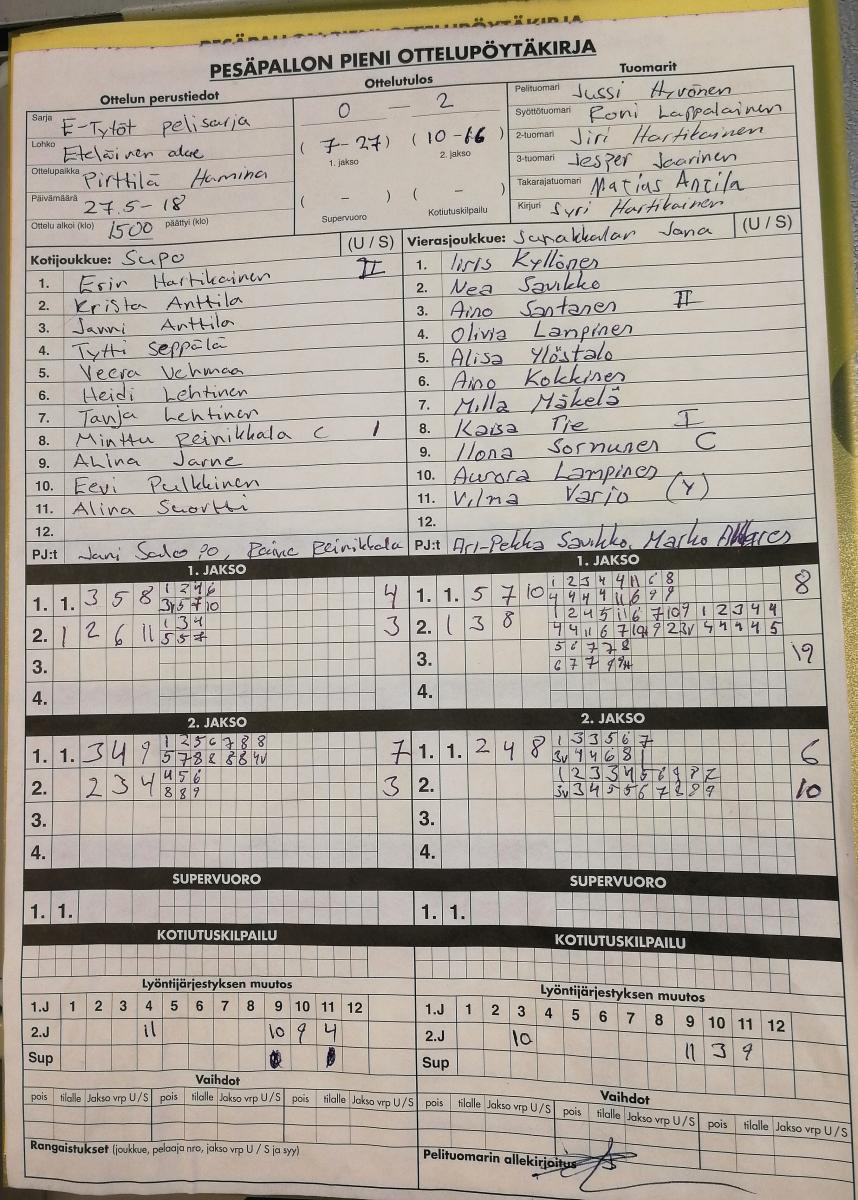 PESÄPALLON PIENI OTTELUPÖYTÄKIRJA
Ottelun perustiedot
Sarja E-Tytöt pelisarja
Lohko Eteläinen alue
Ottelupaikka Pirttilä Hamina
Päivämäärä 27.5-18
Ottelu alkoi (klo) 1500 päättyi (klo)
Ottelutulos
0 — 2
( 7-27 ) ( 10-16 )
1. jakso 2. jakso
( – ) ( – )
Supervuoro Kotiutuskilpailu
Tuomarit
Pelituomari Jussi Hyvönen
Syöttötuomari Roni Lappalainen
2-tuomari Jiri Hartikainen
3-tuomari Jesper Jaarinen
Takarajatuomari Matias Antila
Kirjuri Syri Hartikainen
Kotijoukkue: Supo (U / S)
1. Erin Hartikainen II
2. Krista Anttila
3. Janni Anttila
4. Tytti Seppälä
5. Veera Vehmaa
6. Heidi Lehtinen
7. Tanja Lehtinen
8. Minttu Reinikkala C I
9. Ahina Jarne
10. Eevi Pulkkinen
11. Alina Suortti
12.
PJ:t Jani Salopo, Raine Reinikkala
Vierasjoukkue: Jana (U / S)
1. Iiris Kyllönen
2. Nea Savikko
3. Aino Santanen II
4. Olivia Lampinen
5. Alisa Ylöstalo
6. Aino Kokkinen
7. Milla Mäkelä
8. Kaisa Tie I
9. Ilona Sornunen C
10. Aurora Lampinen
11. Vilma Varjo (Y)
12.
PJ:t Ari-Pekka Savikko, Marko
1. JAKSO
1. 1. 3 5 8 1 2 4 6 4
3v 5 7 10
2. 1 2 6 11 1 3 4 3
5 5 7
3.
4.
1. JAKSO
1. 1. 5 7 10 1 2 3 4 4 11 6 8 8
4 4 4 4 11 6 9 9
2. 1 3 8 1 2 4 5 11 6 7 10 9 1 2 3 4 4
4 4 11 6 7 10 9 2 3v 4 4 4 4 5
3. 5 6 7 7 8 19
6 7 7 9
4.
2. JAKSO
1. 1. 3 4 9 1 2 5 6 7 8 8 7
5 7 8 8 8 8 4v
2. 2 3 4 4 5 6 3
8 8 9
3.
4.
2. JAKSO
1. 1. 2 4 8 1 3 3 5 6 7 6
3v 4 4 6 8 1
2. 1 2 3 3 4 5 6 8 2 10
3v 3 4 5 5 6 7 8 8 9
3.
4.
SUPERVUORO
1. 1.
SUPERVUORO
1. 1.
KOTIUTUSKILPAILU
KOTIUTUSKILPAILU
Lyöntijärjestyksen muutos
1.J 1 2 3 4 5 6 7 8 9 10 11 12
2.J 11 10 9 4
Sup
Lyöntijärjestyksen muutos
1.J 1 2 3 4 5 6 7 8 9 10 11 12
2.J 10 11 3 9
Sup
Vaihdot
pois tilalle Jakso vrp U / S pois tilalle Jakso vrp U / S pois tilalle Jakso vrp U / S
Vaihdot
pois tilalle Jakso vrp U / S pois tilalle Jakso vrp U / S pois tilalle Jakso vrp U / S
Rangaistukset (joukkue, pelaaja nro, jakso vrp U / S ja syy)
Pelituomarin allekirjoitus